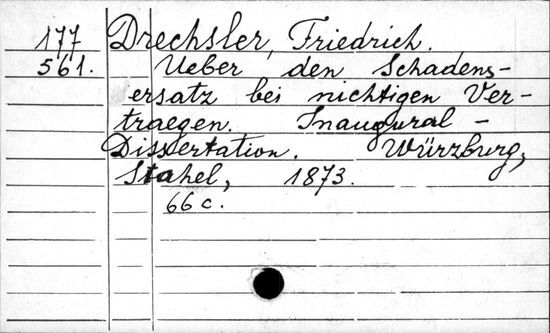 177 Drechsler, Friedrich.
561. Ueber den Schadens-
ersatz bei nichtigen Ver-
traegen. Inaugural -
Dissertation. Würzburg,
Stahel, 1873.
66 c.